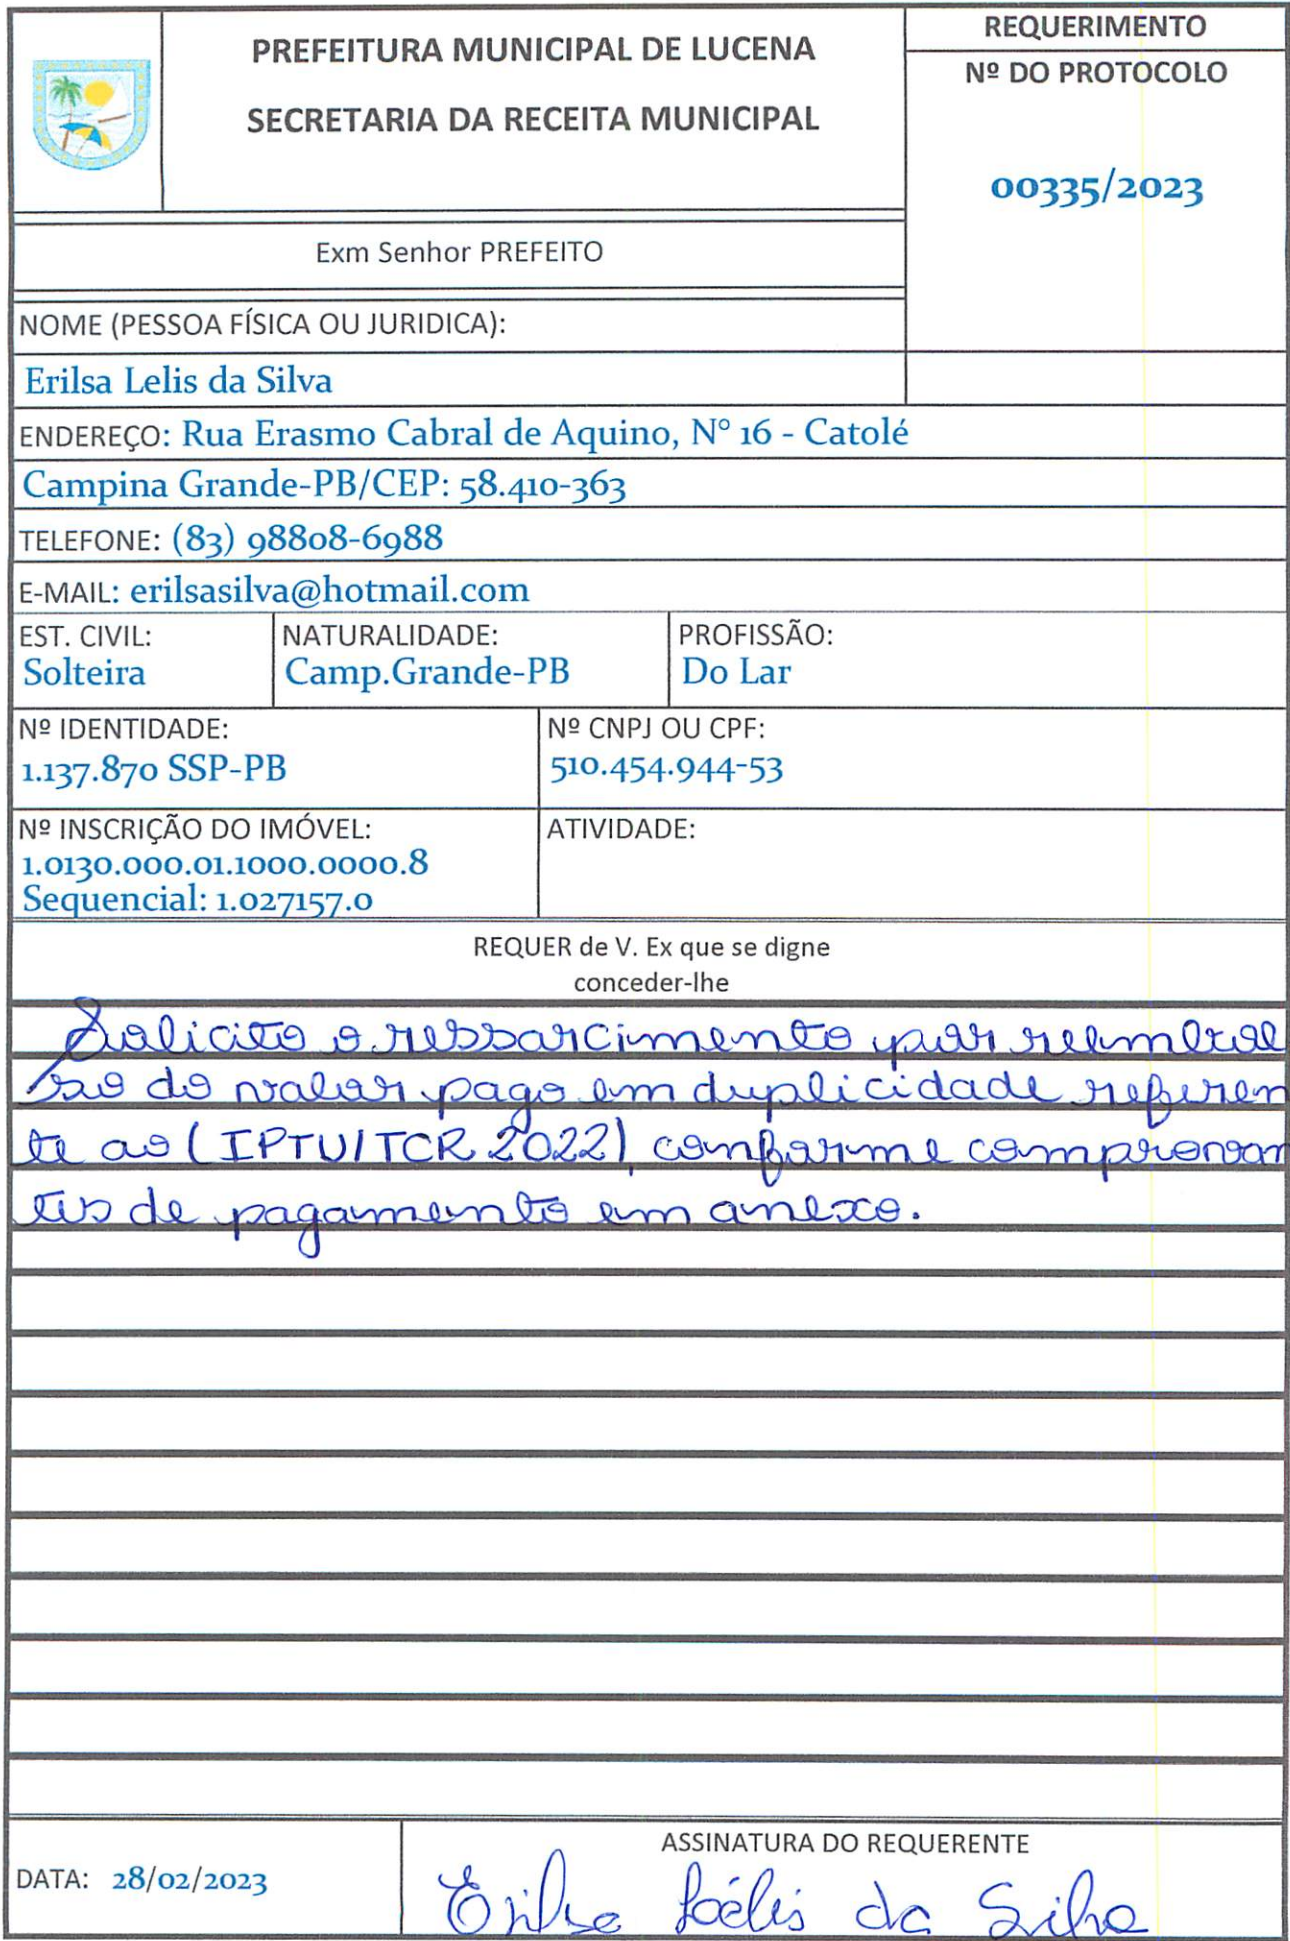 PREFEITURA MUNICIPAL DE LUCENA
SECRETARIA DA RECEITA MUNICIPAL
REQUERIMENTO
Nº DO PROTOCOLO
00335/2023
Exm Senhor PREFEITO
NOME (PESSOA FÍSICA OU JURIDICA):
Erilsa Lelis da Silva
ENDEREÇO: Rua Erasmo Cabral de Aquino, N° 16 - Catolé
Campina Grande-PB/CEP: 58.410-363
TELEFONE: (83) 98808-6988
E-MAIL: erilsasilva@hotmail.com
EST. CIVIL:
Solteira
NATURALIDADE:
Camp.Grande-PB
PROFISSÃO:
Do Lar
Nº IDENTIDADE:
1.137.870 SSP-PB
Nº CNPJ OU CPF:
510.454.944-53
Nº INSCRIÇÃO DO IMÓVEL:
1.0130.000.01.1000.0000.8
Sequencial: 1.027157.0
ATIVIDADE:
REQUER de V. Ex que se digne
conceder-lhe
Solicito o ressarcimento por reembol
so do valor pago em duplicidade referen
te ao (IPTU/TCR 2022), conforme comprovan
tes de pagamento em anexo.
DATA: 28/02/2023
ASSINATURA DO REQUERENTE
Erilsa Lélis da Silva